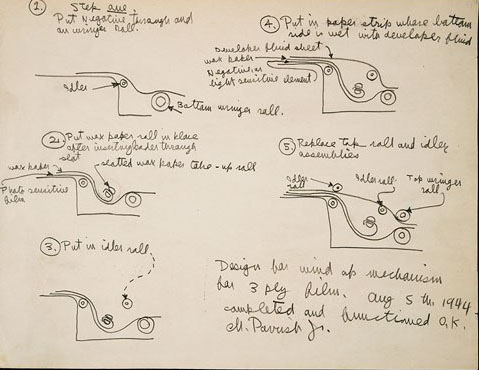 1.
Step one.
Put Negative through and
on wringer roll.
Idler
Bottom wringer roll.
2.
Put wax paper roll in place
after inserting leader through
slot
wax paper
slotted wax paper take-up roll
Photo sensitive
film
3.
Put in idler roll
4.
Put in paper strip where bottom
side is wet with developer fluid
Developer fluid sheet
wax paper
Negative or
light sensitive element
5.
Replace top roll and idler
assemblies
Idler
roll
Idler roll
Top wringer
roll
Design for wind up mechanism
for 3 ply film. Aug 5th, 1944
completed and functioned O.K.
Jr.